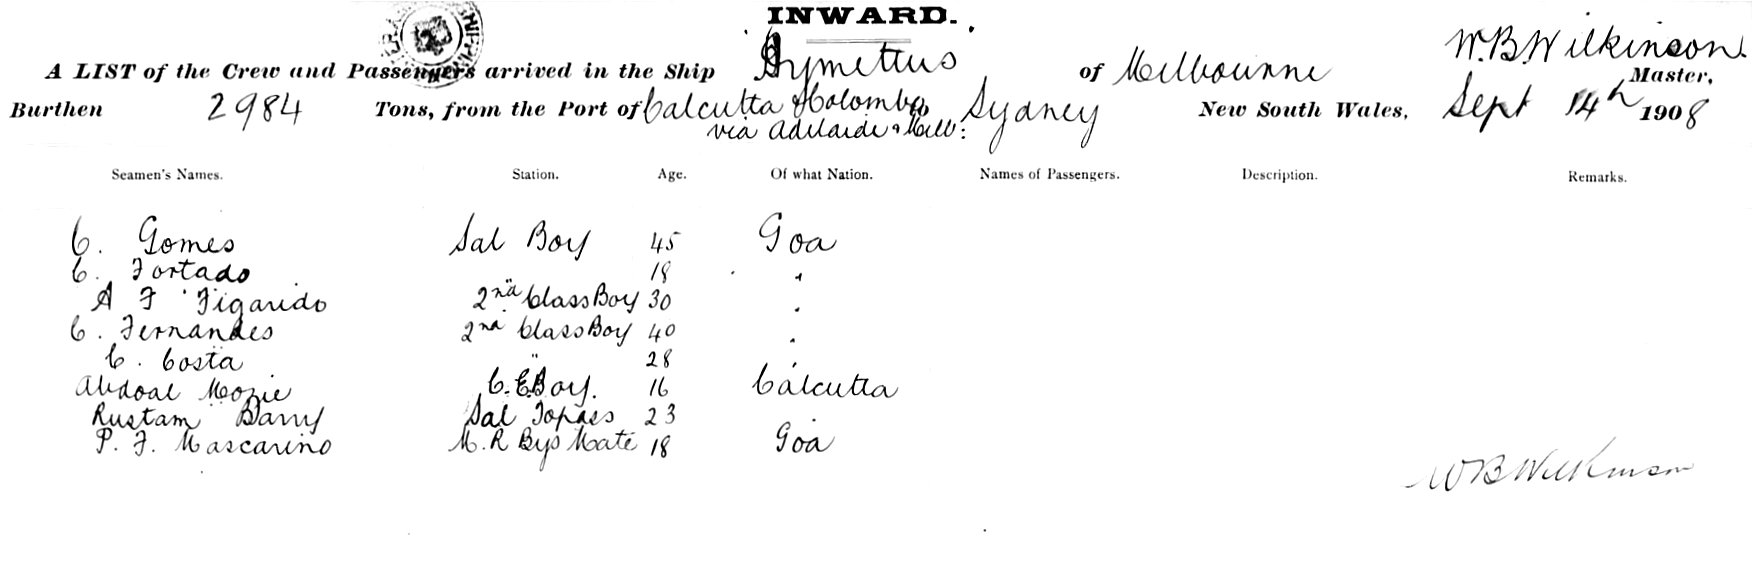 INWARD.
A LIST of the Crew and Passengers arrived in the Ship Hymettus of Melbourne W.B. Wilkinson Master,
Burthen 2984 Tons, from the Port of Calcutta & Colombo to Sydney New South Wales, Sept 14th 1908
via Adelaide & Melb:
Seamen's Names. Station. Age. Of what Nation. Names of Passengers. Description. Remarks.
C. Gomes Sal Boy 45 Goa
C. Fortado " 18 "
A F Figarido 2nd Class Boy 30 "
C. Fernandes 2nd Class Boy 40 "
C. Costa " 28 "
Abdoal Mozie C.E. Boy. 16 Calcutta
Rustam Barry Sal Topass 23
P. F. Mascarino M. R Bys Mate 18 Goa
W B Wilkinson